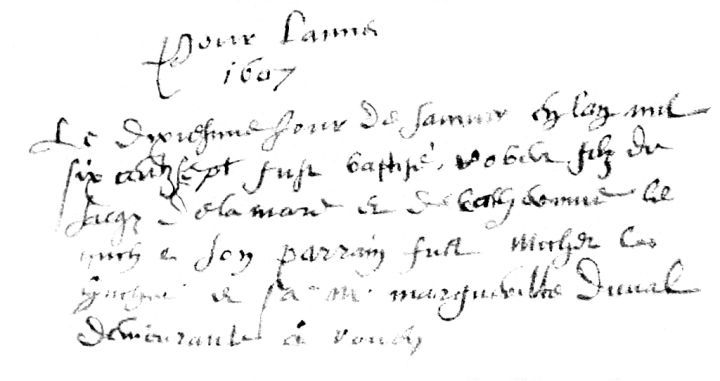 Pour Lannee
1607
Le dixiesme Jour de Janvier En lan mil
six centz sept fust baptisé robert filz de
Jacqz Delamare & de le
& son parrain fust Michel le
& sa m. margueritte Duval
demeurante a rouen